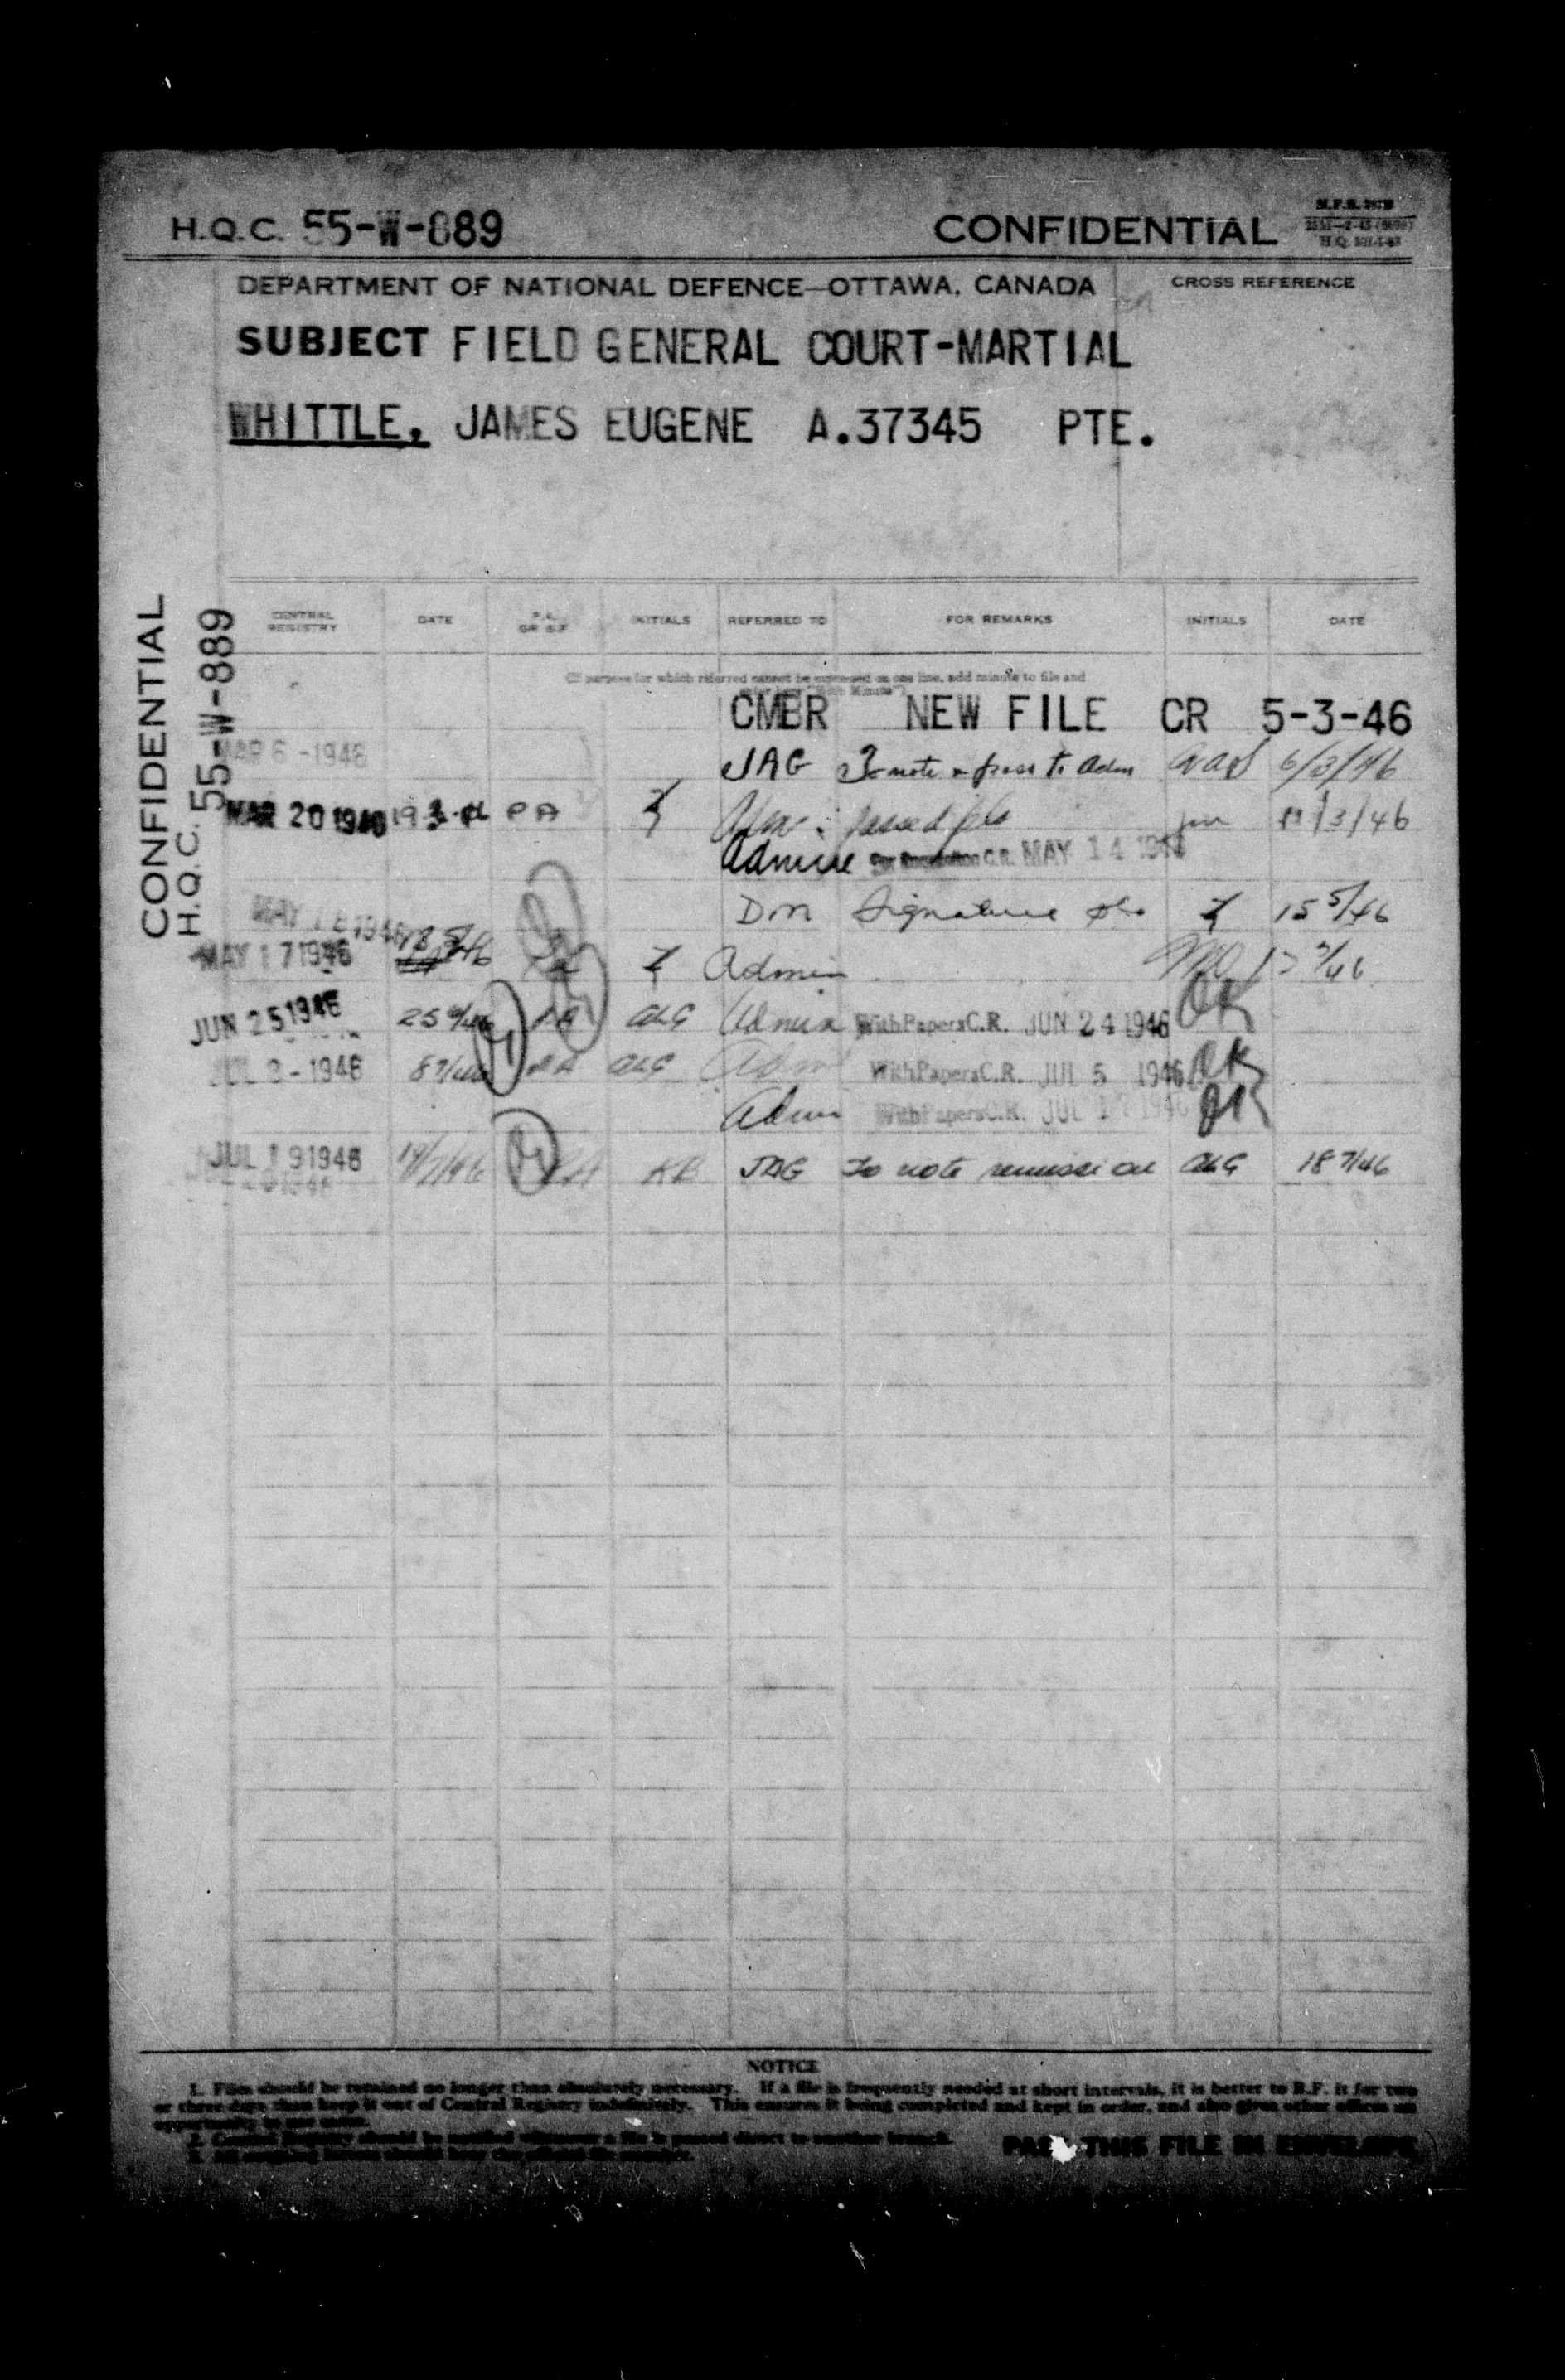 H.Q.C. 55-W-889 CONFIDENTIAL
DEPARTMENT OF NATIONAL DEFENCE—OTTAWA, CANADA CROSS REFERENCE
SUBJECT FIELD GENERAL COURT-MARTIAL
WHITTLE, JAMES EUGENE A.37345 PTE.
CONFIDENTIAL
H.Q.C. 55-W-889
CENTRAL REGISTRY DATE P.A. OR B.F. INITIALS REFERRED TO FOR REMARKS INITIALS DATE
(If purpose for which referred cannot be expressed on one line, add minute to file and
CMBR NEW FILE CR 5-3-46
MAR 6 - 1946 JAG To note & pass to Adm 6/3/46
MAR 20 1946 PA passed /3/46
Admin C.R. MAY 14
DM Signature pls. 15 5/46
MAY 17 1946 Admin
JUN 25 1946 25 6/46 PA ALG Admin With Papers C.R. JUN 24 1946 OK
JUL 8 - 1946 8 7/46 PA ALG Adm With Papers C.R. JUL 5 1946 OK
Adm With Papers C.R. JUL 17 1946 OK
JUL 19 1946 19/7/46 PA KB JAG To note remission ALG 18 7/46
NOTICE
1. Files should be retained no longer than absolutely necessary. If a file is frequently needed at short intervals, it is better to B.F. it for two
or three days than keep it out of Central Registry indefinitely. This ensures it being completed and kept in order, and also gives other offices an
2. Central Registry should be notified whenever a file is passed direct to another branch.
THIS FILE IN ENVELOPE